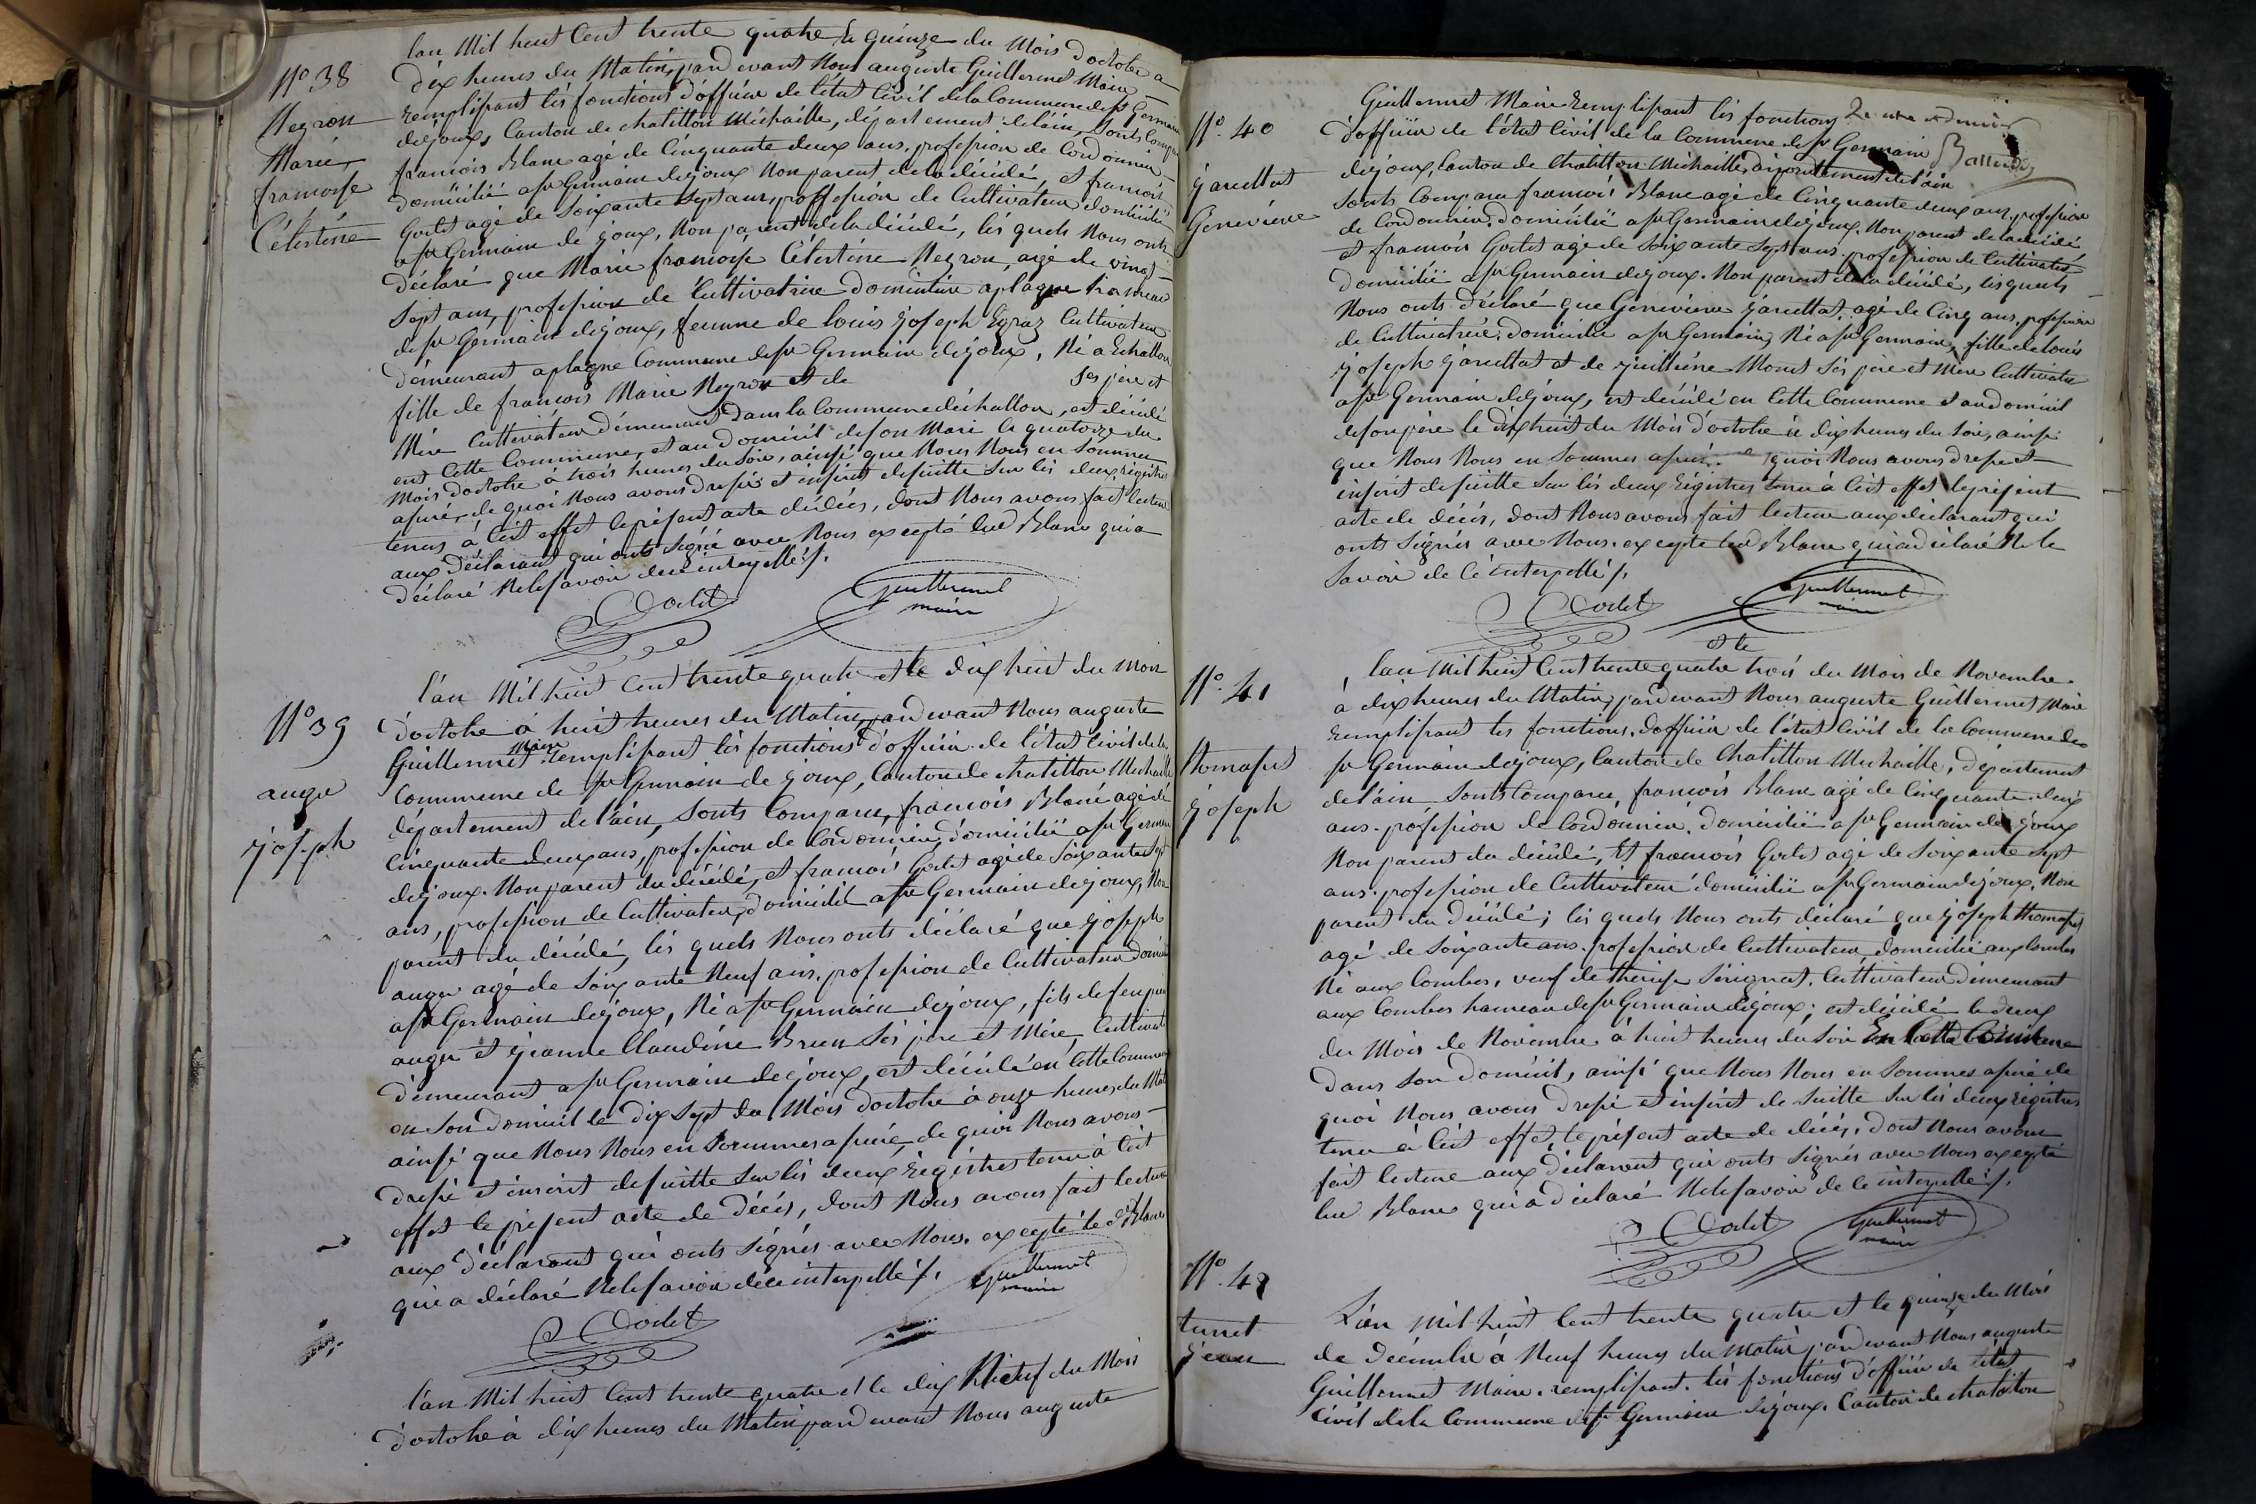 N.° 38
Neyron
Marie
francoise
Célestine
lan Mil huit Cent trente quatre le quinze du Mois doctobre a
dix heures du Matin, pard evant Nous auguste Guillermet Maire
remplissant lés fonctions d'officier de létat Civil dela Commune de st Germain
dejoux, Canton de chatillon Michaille, département delain, Sonts Comparu
francois Blanc agé de Cinquante deux ans, profession de Cordonnier
domicilié a st Germain dejoux Non parent dela décédé, et francois
Godet agé de Soixante Sept ans, proffession de Cultivateur domicilié
a st Germain de joux, Non parent dela décédé, lés quels Nous onts
déclaré que Marie francoise Célestine Neyron, agé de vingt
Sept ans, profession de Cultivatrice domiciliée a plagne hameau
de st Germain dejoux, femme de louis Joseph Egraz Cultivateur
demeurant a plagne Commune de st Germain dejoux, Né a Echallon
fille de francois Marie Neyron et de ses père et
Mère Cultivateur démeurant dans la Commune déchallon, est décédé
ent Cette Commune, et au domicil de son Mari le quatorze du
Mois doctobre à trois heures du Soir, ainsi que Nous Nous en Sommes
assuré, de quoi Nous avons dressé et inscrit de suitte Sur lés deux régistres
tenus à Cét effet le présent acte dédécés, dont Nous avons fait lecture
aux déclarant qui onts signé avec Nous excepté led Blanc qui a
déclaré Nelesavoir dece interpellé ./.
Godet Guillermet
maire
N.° 39
auger
Joseph
l'an Mil huit Cent trente quatre et le dix huit du Mois
doctobre à huit heures du Matin, pard evant Nous auguste
Guillermet Maire remplissant lés fonctions d'officier de létat Civil de la
Commune de st Germain de joux, Canton de chatillon Michaille
département de l'ain, Sonts Comparu, francois Blanc agé dé
Cinquante deux ans, profession de Cordonnier, domicilié a st Germain
dejoux. Non parent du décédé, et francois Godet agé de Soixante Sept
ans, profession de Cultivateur, domicilié a st Germain dejoux, Non
parent du décédé, lés quels Nous onts déclaré que Joseph
auger agé de Soixante Neuf ans, profession de Cultivateur domicilié
a st Germain dejoux, Né a st Germain dejoux, fils de feu
auger et Jeanne Claudine Brun Sés père et Mère, Cultivat
démeurant a st Germain dejoux, est décédé en Cette Commune
en Son domicil le dix Sept du Mois doctobre à onze heures du Matin
ainsi que Nous Nous en Sommes assuré, de quoi Nous avons
dressé et inscrit de suitte Sur lés deux Régistres tenu à Cét
effet le présent acte de décés, dont Nous avons fait lecture
aux déclarant qui onts signés avec Nous, excepté led Blanc
qui a déclaré Nelesavoir déce interpellé ./.
Guillermet
maire
Godet
l'an Mil huit Cent trente quatre et le dix Neuf du Mois
doctobre à dix heures du Matin pard evant Nous auguste
N.° 40
Genevieve
Guillermet Maire Remplissant lés fonctions
d'officier de l'état Civil de la Commune de st Germain
déjoux, Canton de Chatillon Michaille, département de lain
Sonts Comparu francois Blanc agé de Cinquante deux ans, profession
de Cordonnier, domicilié a st Germain dejoux. Non parent dela décédé
et francois Godet agé de Soixante Sept ans, profession de Cultivateur
domicilié a st Germain dejoux. Non parent dela décédé, lésquels
Nous onts déclaré que Genevieve agé de Cinq ans, profession
de Cultivatrice, domicilié a st Germain, Né a st Germain, fille de louis
Joseph et de Sés père et Mere Cultivateur
a st Germain déjoux, est décédé en Cette Commune et au domicil
de son père le dix huit du Mois d'octobre à dix heures du Soir, ainsi
que Nous Nous en Sommes assuré. de quoi Nous avons dressé et
inscrit de suitte Sur lés deux Régistres tenu à Cét effet le présent
acte de décés, dont Nous avons fait lecture aux déclarant qui
onts Signés avec Nous. excepté led Blanc qui a déclaré Ne le
Savoir de Cé interpellé ./.
Godet Guillermet
maire
N.° 41
thomasset
Joseph
et le
lan Mil huit Cent trente quatre trois du Mois de Novembre
à dix heures du Matin, pardevant Nous auguste Guillermet Maire
remplissant les fonctions d'officier de l'état Civil de la Commune de
st Germain dejoux, Canton de Chatillon Michaille, département
de lain Sonts Comparu, francois Blanc agé de Cinquante deux
ans. profession de Cordonnier. domicilié a st Germain de joux
Non parent du décédé, Et francois Godet agé de Soixante Sept
ans. profession de Cultivateur domicilié a st Germain dejoux. Non
parent du décédé; lés quels Nous onts déclaré que Joseph thomasset
agé de Soixante ans. profession de Cultivateur, domicilié aux Combes
Né aux Combes, veuf de thérèse Sérignat. Cultivateur démeurant
aux Combes hameau de st Germain dejoux; est décédé le deux
du Mois de Novembre à huit heures du Soir En Cette Commune
dans Son domicil, ainsi que Nous Nous en Sommes assuré de
quoi Nous avons dressé et inscrit de Suitte Sur lés deux régistres
tenu à Cét effet, le présent acte de décés, dont Nous avons
fait lecture aux déclarant qui onts Signés avec Nous excepté
led Blanc qui a déclaré Nelesavoir de ce interpellé ./.
Godet Guillermet
maire
N.° 42
turret
Jean
L'an Mil huit Cent trente quatre et le quinze du Mois
de Décembre à Neuf heures du Matin pard evant Nous auguste
Guillermet Maire. remplissant. lés fonctions d'officier de létat
Civil dela Commune de st Germain dejoux. Canton de chatillon